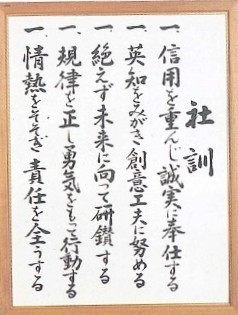 社訓
一、信用を重んじ誠実に奉仕する
一、英知をみがき創意工夫に努める
一、絶えず未来に向って研鑽する
一、規律を正し勇気をもって行動する
一、情熱をそそぎ責任を全うする